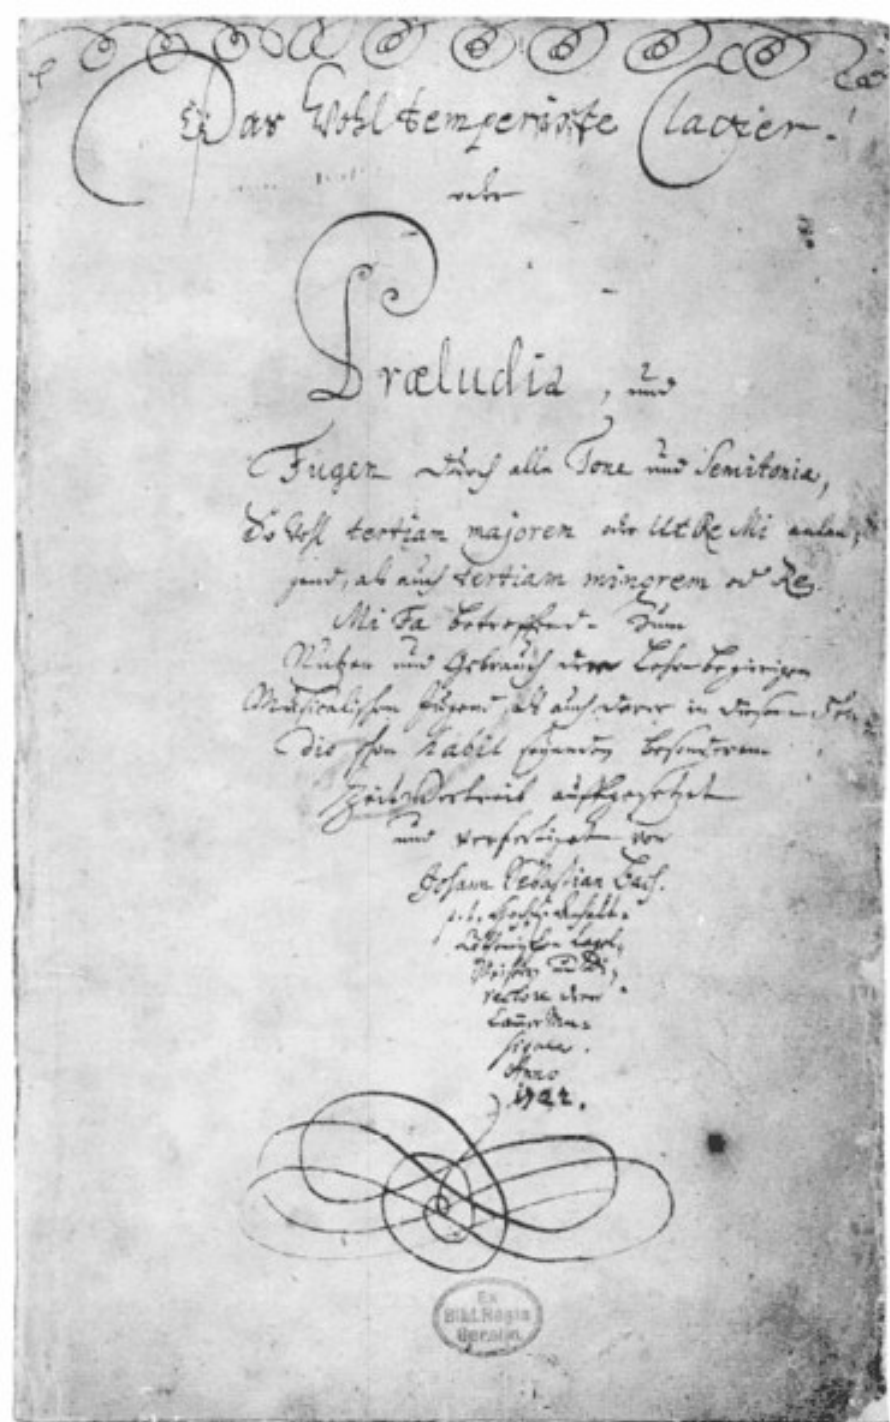 Das Wohltemperirte Clavier.
oder
Præludia, und
Fugen durch alle Tone und Semitonia,
So wohl tertiam majorem oder Ut Re Mi anlan,
gend, als auch tertiam minorem od Re
Mi Fa betreffend. Zum
Nutzen und Gebrauch der Lehrbegierigen
Musicalischen Jugend, als auch derer in diesem stu,
dio schon habil seyenden besonderem
ZeitVertreib auffgesetzet
und verfertiget von
Johann Sebastian Bach.
p. t. Hochf. Anhalt.
Cöthenischen Capel,
Meistern und Di,
rectore derer
Cammer Mu,
siquen.
Anno
1722.
Ex
Bibl. Regia
Berolin.